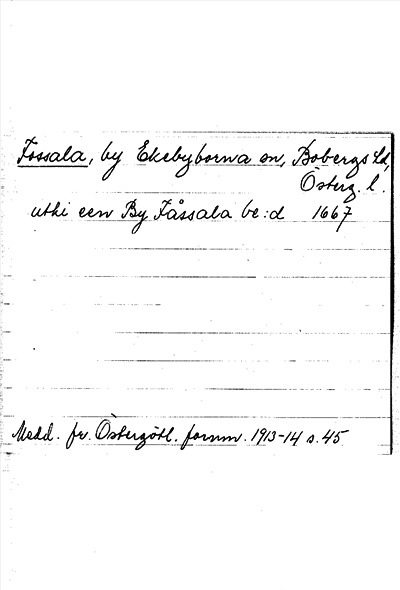 Fossala, by Ekebyborna sn, Bobergs hd,
Österg. l.
uthi een By Fåssala be:d 1667
Medd. fr. Östergötl. fornm. 1913-14 s. 45